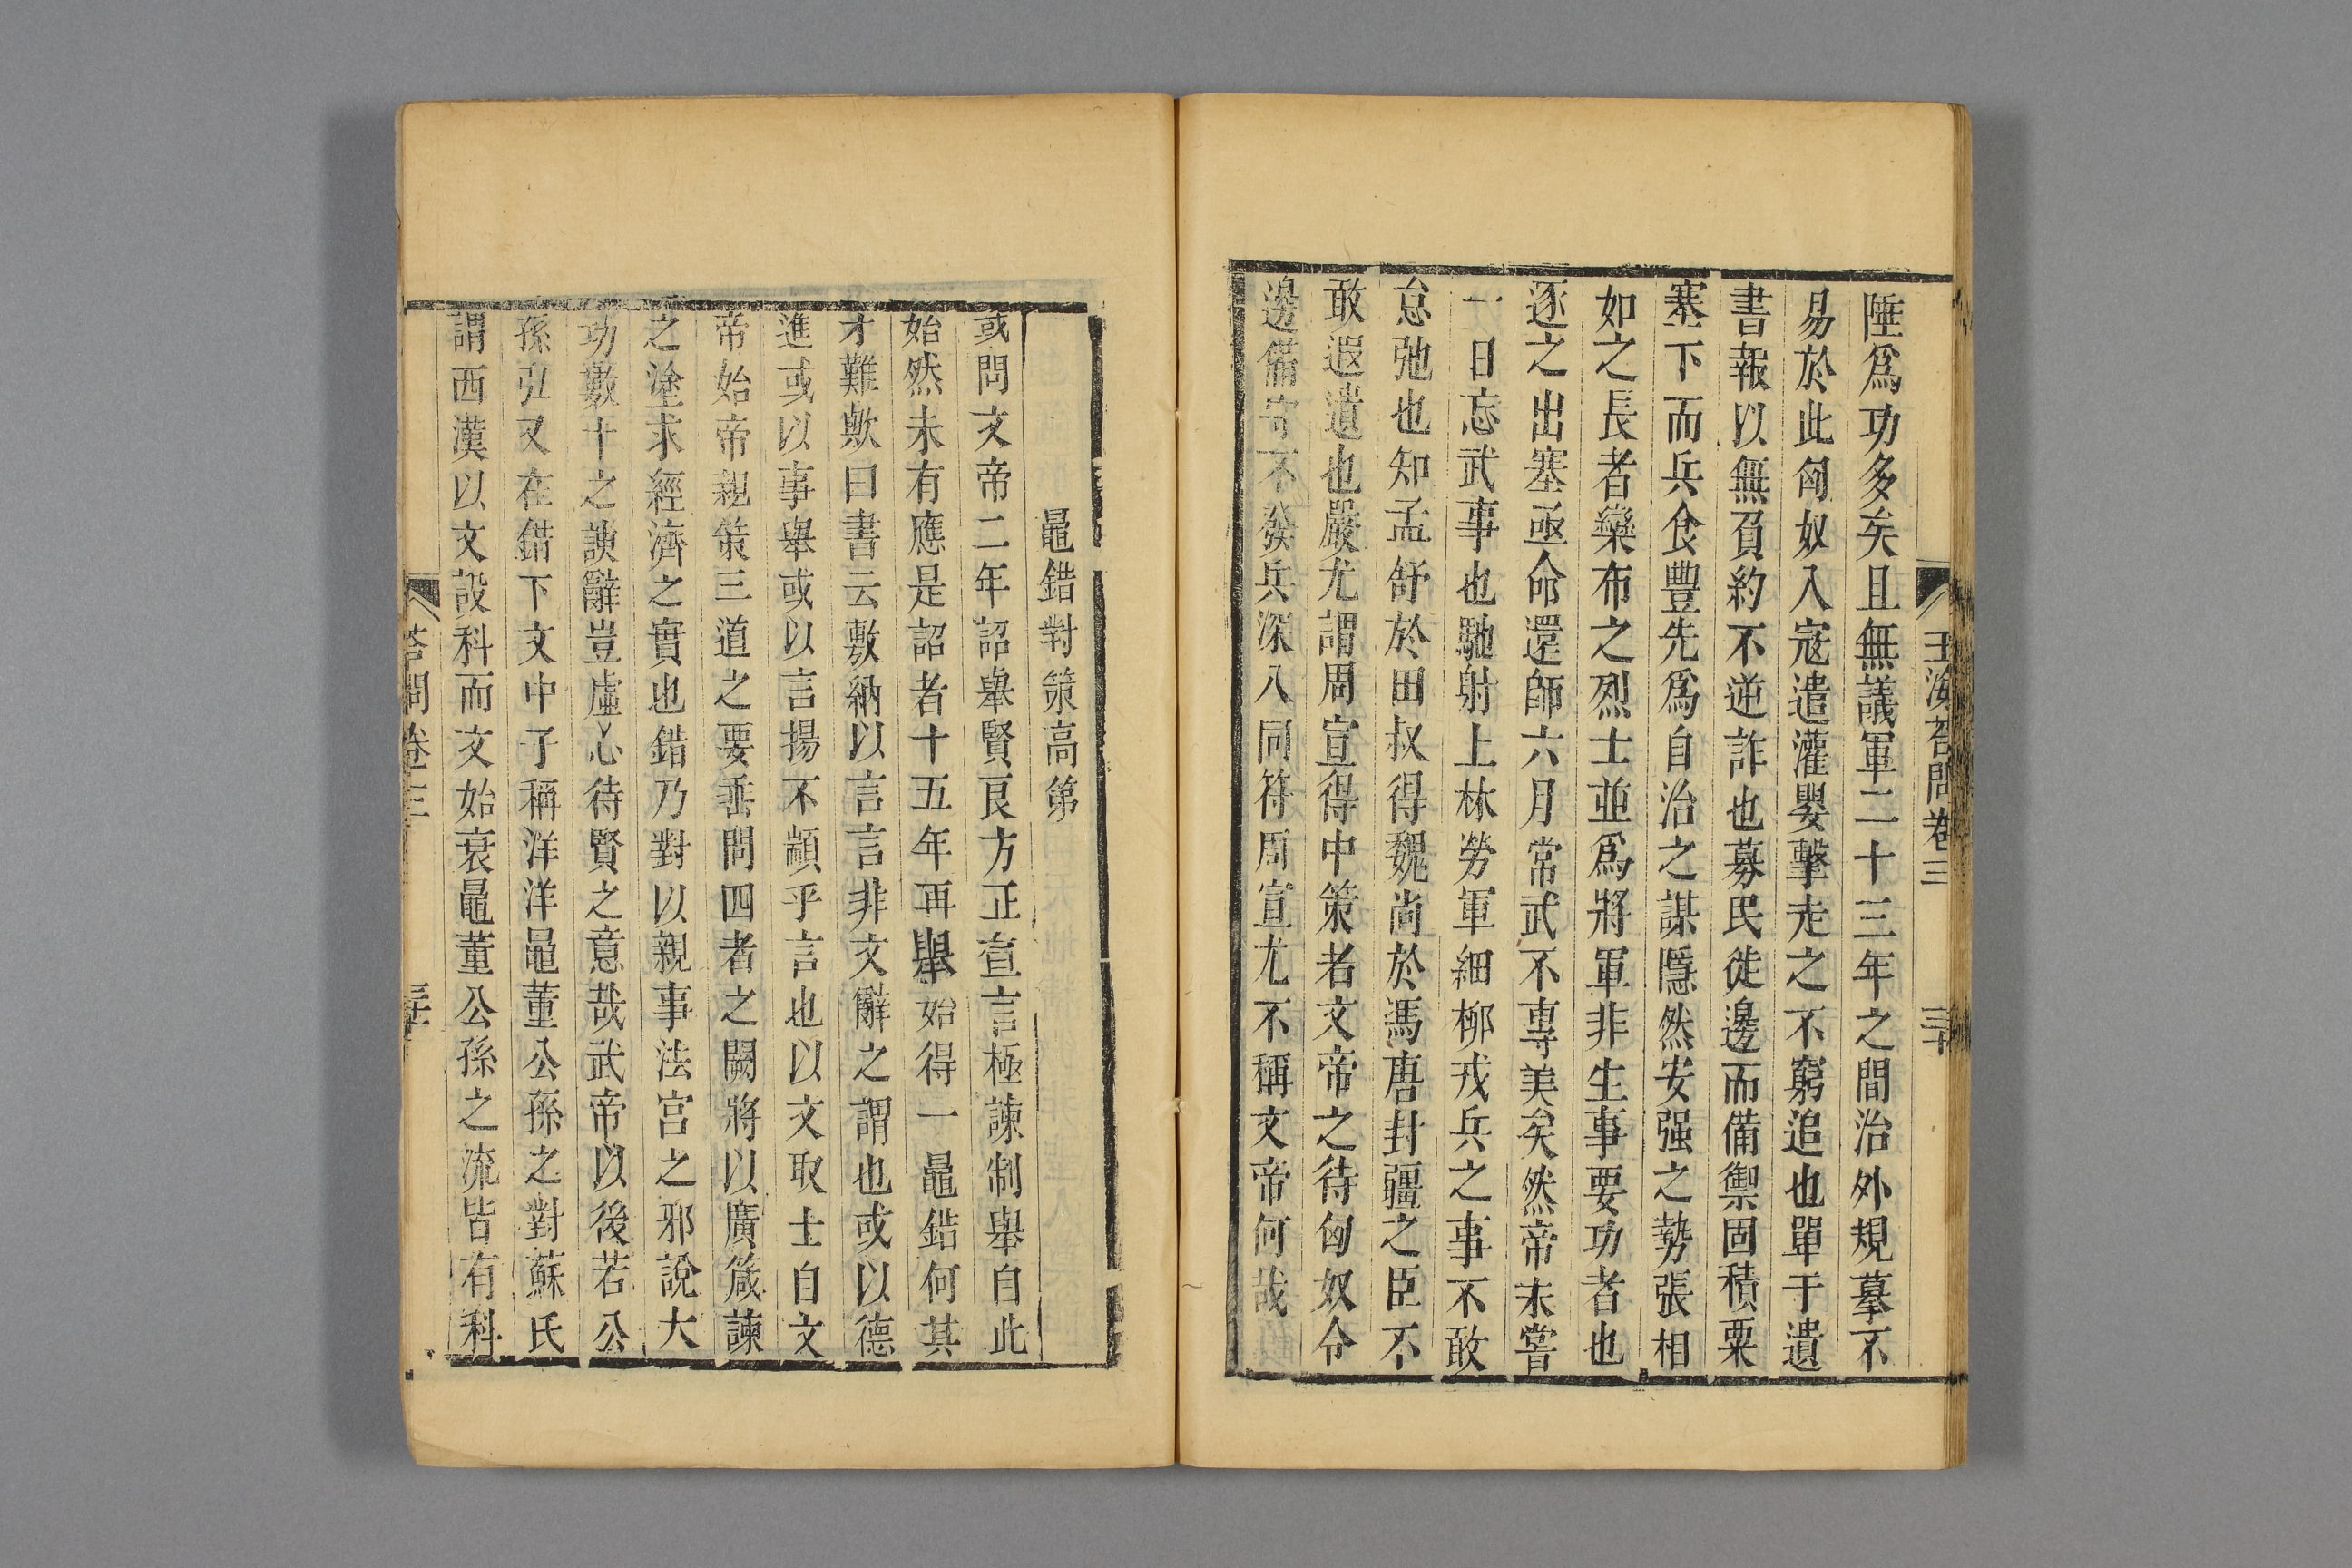 玉海答問卷三 三十
陲爲功多矣且無議軍二十三年之間治外規摹不
易於此匈奴入寇遣灌嬰擊走之不窮追也單于遺
書報以無負約不逆詐也募民徙邊而備禦固積粟
塞下而兵食豐先爲自治之謀隱然安强之勢張相
如之長者欒布之烈士並爲將軍非生事要功者也
逐之出塞亟命還師六月常武不專美矣然帝未嘗
一日忘武事也馳射上林勞軍細柳戎兵之事不敢
怠弛也知孟舒於田叔得魏尚於馮唐封疆之臣不
敢遐遺也嚴尤謂周宣得中策者文帝之待匈奴令
邊備守不發兵深入同符周宣尤不稱文帝何哉
鼂錯對策高第
或問文帝二年詔舉賢良方正直言極諫制舉自此
始然未有應是詔者十五年再舉始得一鼂錯何其
才難歟曰書云敷納以言言非文辭之謂也或以德
進或以事舉或以言揚不顓乎言也以文取士自文
帝始帝親策三道之要垂問四者之闕將以廣箴諫
之塗求經濟之實也錯乃對以親事法宫之邪說大
功數十之諛辭豈虛心待賢之意哉武帝以後若公
孫弘又在錯下文中子稱洋洋鼂董公孫之對蘇氏
謂西漢以文設科而文始衰鼂董公孫之流皆有科
答問卷三